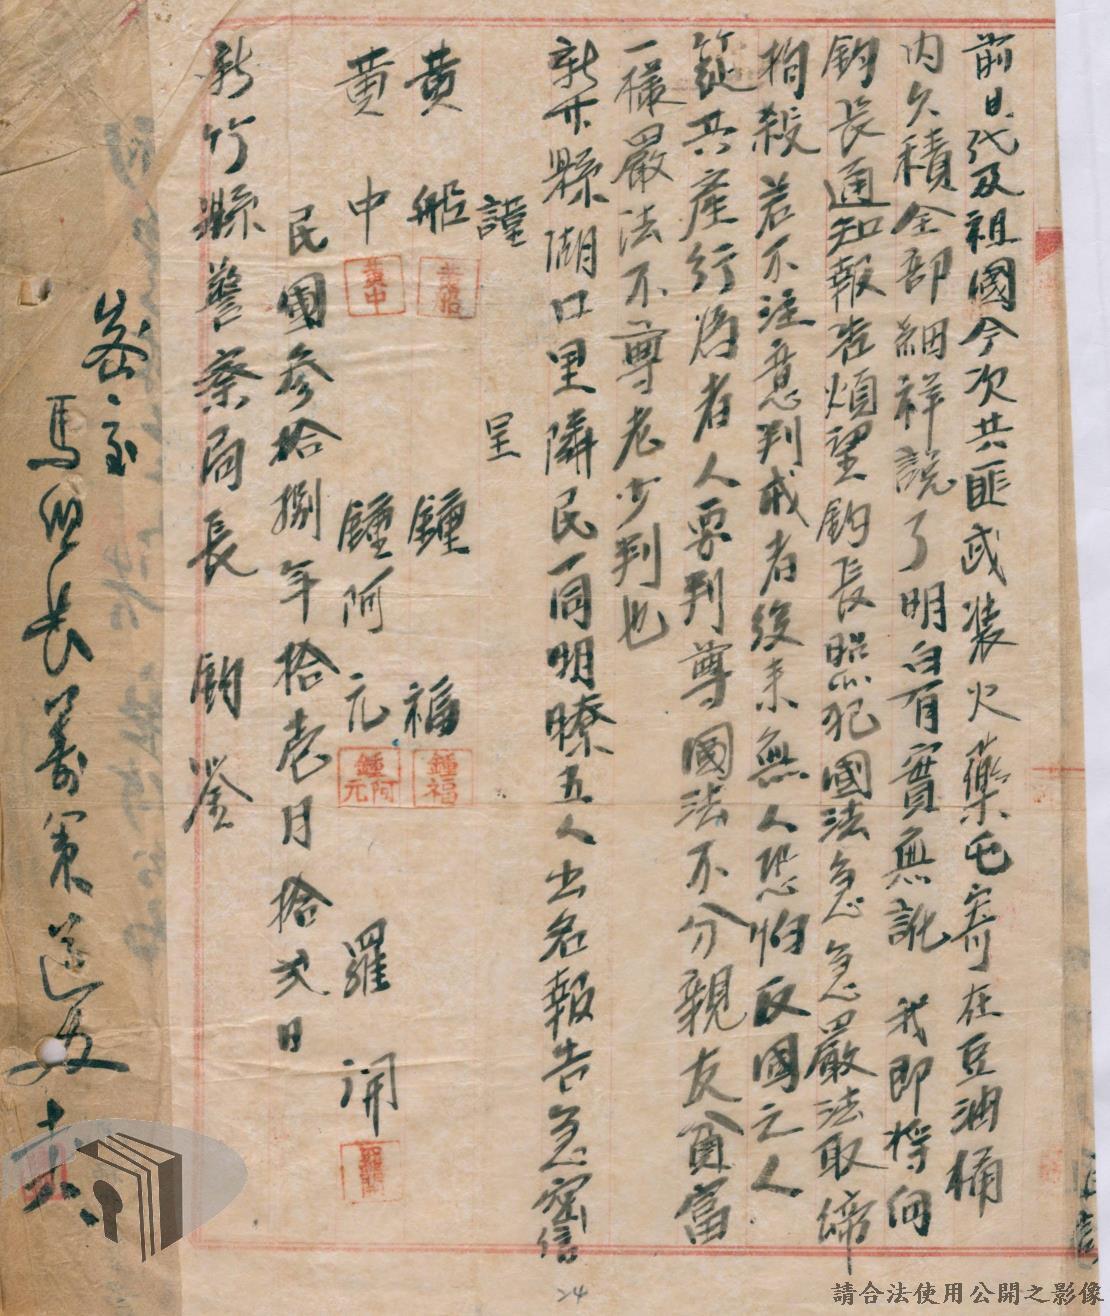 前日代及祖國今次共匪武裝火藥屯寄在豆油桶
內久積全部細祥說了明白有實無訛 我即將何
鈞長通知報告煩望鈞長照犯國法急急嚴法取締
拘殺若不注意判戒者後來無人恐怕反國之人
從共產行為者人要判尊國法不分親友貧富
一樣嚴法不尊老少判也
新竹縣湖口里隣民一同明瞭五人出名報告急密信
謹 呈
黃船 鍾福
黃船
鍾福
黃中 鍾阿元 羅開
黃中
鍾阿元
羅開
民國參拾捌年拾壱月拾弍日
新竹縣警察局長 鈞鑒
馬組長籌策
十六
24
請合法使用公開之影像